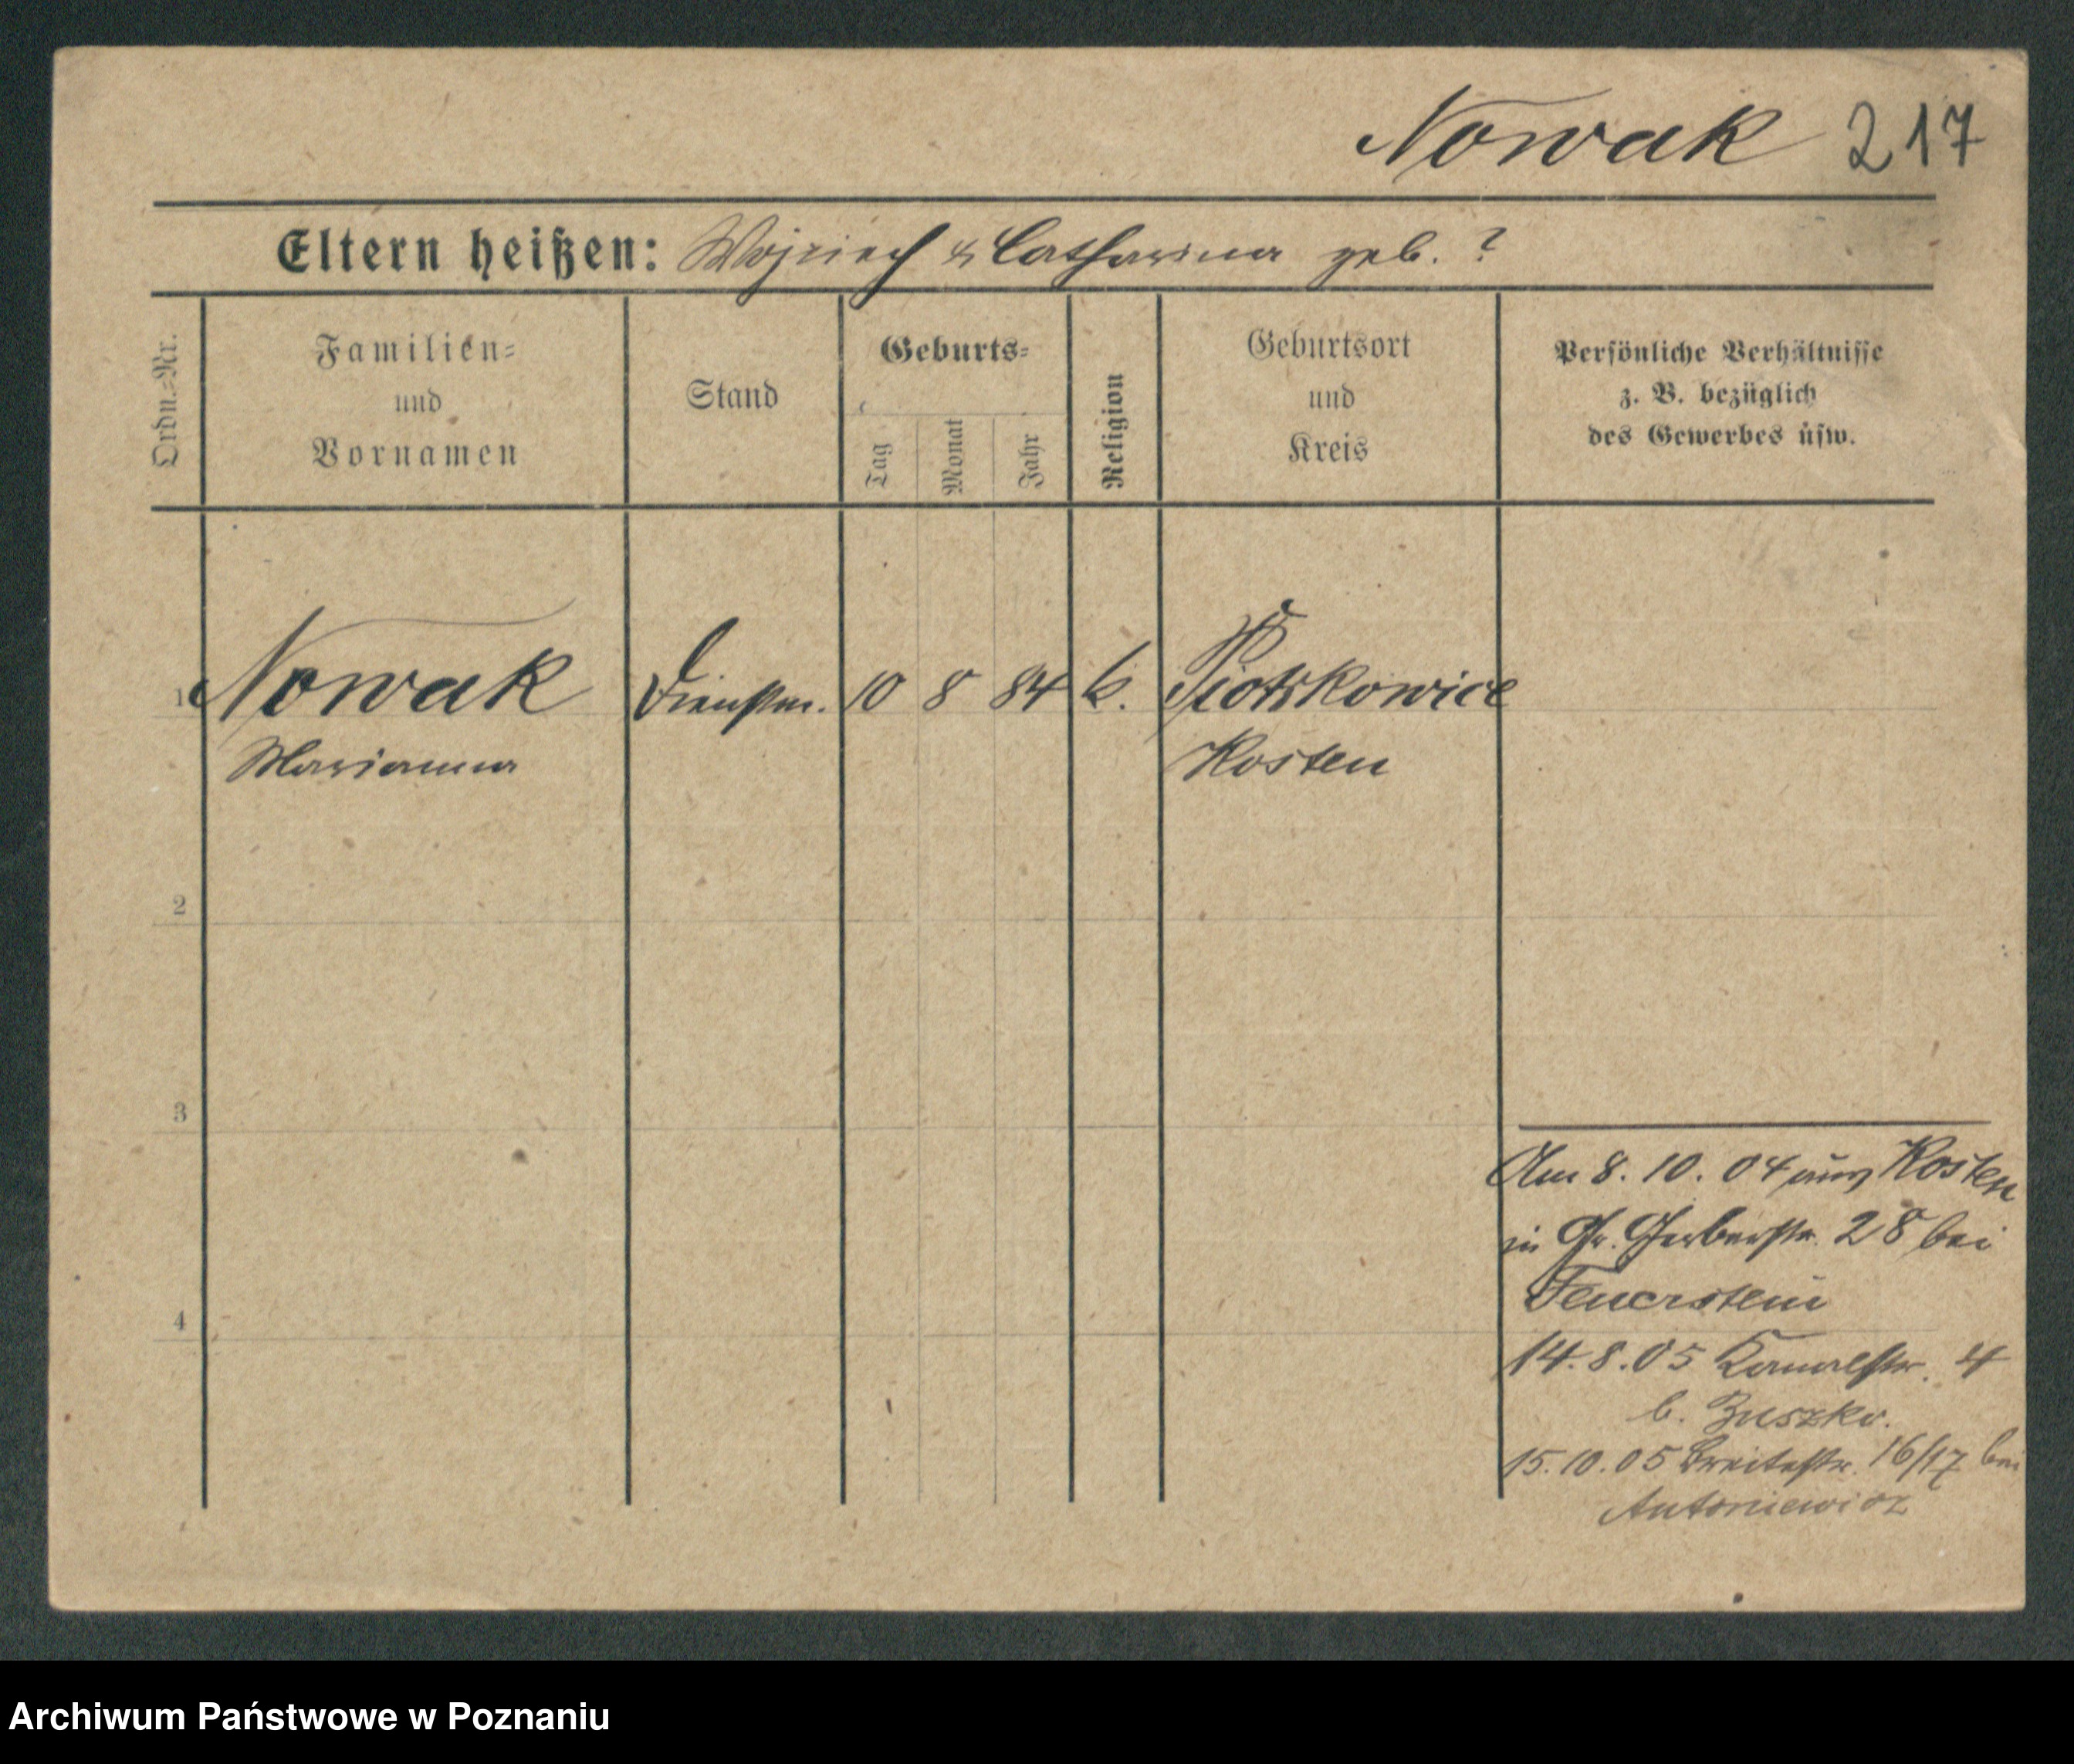 Nowak 217
Eltern heißen: Wojciech & Catharina geb. ?
Ordn.=Nr.
Familien=
und
Vornamen
Stand
Geburts=
Tag
Monat
Jahr
Religion
Geburtsort
und
Kreis
Persönliche Verhältnisse
z. B. bezüglich
des Gewerbes usw.
1 Nowak Dienstm. 10 8 84 k. Piotrkowice
Marianna Kosten
2
3
4
Am 8. 10. 04 aus Kosten
in Gr. Gerberstr. 28 bei
Feuerstein
14. 8. 05 Kanalstr. 4
b.
15. 10. 05 Breitestr. 16/17 bei
Antoniewicz
Archiwum Państwowe w Poznaniu